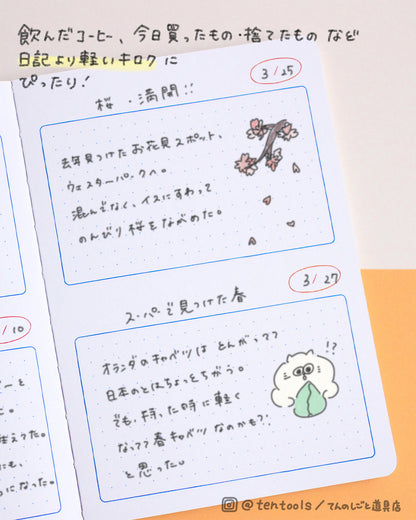 飲んだコーヒー、今日買ったもの・捨てたもの など
日記より軽いキロクに
ぴったり!
3/25
桜・満開!!
去年見つけたお花見スポット、
ウェスターパークへ。
混んでなく、イスにすわって
のんびり桜をながめた。
3/27
スーパーで見つけた春
オランダのキャベツは とんがってて
日本のとはちょっとちがう。
でも、持った時に軽く
なってて春キャベツなのかも?!
と思った。
!?
/10
ーと
た。
えてた。
にも、
になった。
@tentools/てんのしごと道具店